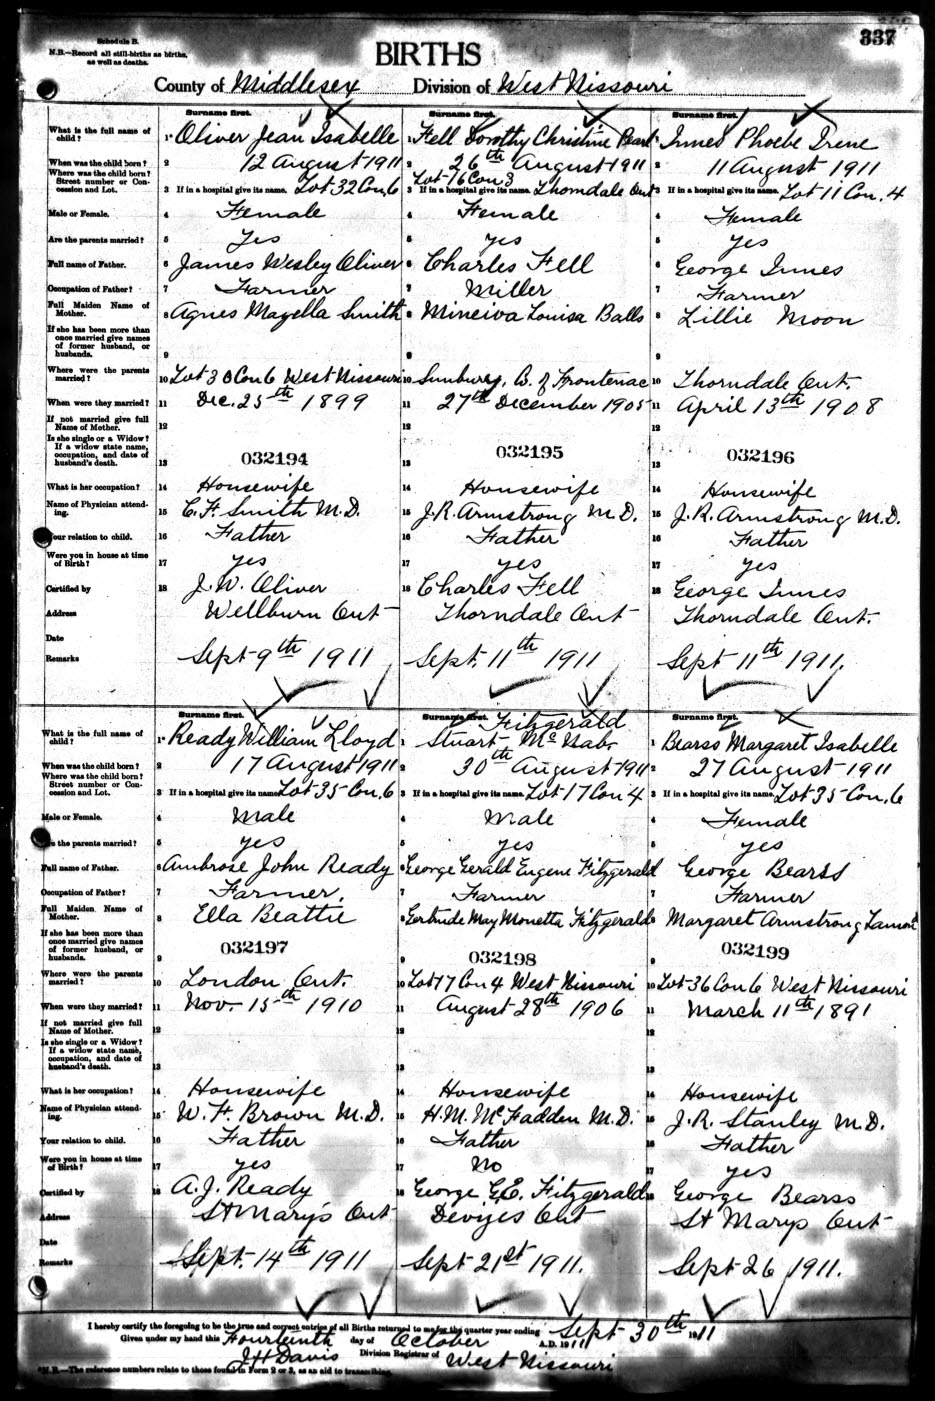 337
Schedule B.
N.B.—Record all still-births as births,
as well as deaths.
BIRTHS
County of Middlesex Division of West Nissouri
Surname first. Surname first. Surname first.
What is the full name of child? 1 Oliver Jean Isabelle 1 Fell Dorothy Christine Pearl 1 Innes Phoebe Irene
When was the child born? 2 12 August 1911 2 26th August 1911 2 11 August 1911
Where was the child born? Street number or Concession and Lot. 3 If in a hospital give its name. Lot 32 Con. 6 3 If in a hospital give its name. Lot 16 Con 3 Thorndale Ont 3 If in a hospital give its name. Lot 11 Con. 4
Male or Female. 4 Female 4 Female 4 Female
Are the parents married? 5 Yes 5 yes 5 yes
Full name of Father. 6 James Wesley Oliver 6 Charles Fell 6 George Innes
Occupation of Father? 7 Farmer 7 Miller 7 Farmer
Full Maiden Name of Mother. 8 Agnes Mayella Smith 8 Mineiva Louisa Balls 8 Lillie Moon
If she has been more than once married give names of former husband, or husbands. 9 9 9
Where were the parents married? 10 Lot 30 Con 6 West Nissouri 10 Sunbury, B. of Frontenac 10 Thorndale Ont.
When were they married? 11 Dec. 25th 1899 11 27th December 1905 11 April 13th 1908
If not married give full Name of Mother. 12 12 12
Is she single or a Widow? If a widow state name, occupation, and date of husband's death. 13 032194 13 032195 13 032196
What is her occupation? 14 Housewife 14 Housewife 14 Housewife
Name of Physician attending. 15 C. F. Smith M.D. 15 J.R. Armstrong M.D. 15 J.R. Armstrong M.D.
Your relation to child. 16 Father 16 Father 16 Father
Were you in house at time of Birth? 17 yes 17 yes 17 yes
Certified by 18 J.W. Oliver 18 Charles Fell 18 George Innes
Address Wellburn Ont Thorndale Ont Thorndale Ont.
Date
Remarks Sept 9th 1911 Sept. 11th 1911 Sept 11th 1911.
Surname first. Surname first. Surname first.
What is the full name of child? 1 Ready William Lloyd 1 Fitzgerald Stuart McNab 1 Bearss Margaret Isabelle
When was the child born? 2 17 August 1911 2 30th August 1911 2 27 August 1911
Where was the child born? Street number or Concession and Lot. 3 If in a hospital give its name Lot 35 Con. 6 3 If in a hospital give its name. Lot 17 Con 4 3 If in a hospital give its name. Lot 35 Con. 6
Male or Female. 4 Male 4 Male 4 Female
Are the parents married? 5 yes 5 yes 5 yes
Full name of Father. 6 Ambrose John Ready 6 George Gerald Eugene Fitzgerald 6 George Bearss
Occupation of Father? 7 Farmer. 7 Farmer 7 Farmer
Full Maiden Name of Mother. 8 Ella Beattie 8 Gertrude May Monetta Fitzgerald 8 Margaret Armstrong Lamont
If she has been more than once married give names of former husband, or husbands. 9 032197 9 032198 9 032199
Where were the parents married? 10 London Ont. 10 Lot 17 Con 4 West Nissouri 10 Lot 36 Con 6 West Nissouri
When were they married? 11 Nov. 15th 1910 11 August 28th 1906 11 March 11th 1891
If not married give full Name of Mother. 12 12 12
Is she single or a Widow? If a widow state name, occupation, and date of husband's death. 13 13 13
What is her occupation? 14 Housewife 14 Housewife 14 Housewife
Name of Physician attending. 15 W. F. Brown M.D. 15 H.M. McFadden M.D. 15 J.R. Stanley M.D.
Your relation to child. 16 Father 16 Father 16 Father
Were you in house at time of Birth? 17 yes 17 No 17 yes
Certified by 18 A.J. Ready 18 George G.E. Fitzgerald 18 George Bearss
Address St Mary's Ont Devizes Ont St Marys Ont
Date
Remarks Sept. 14th 1911 Sept 21st 1911. Sept 26 1911.
I hereby certify the foregoing to be the true and correct entries of all Births returned to me for the quarter year ending Sept 30th 1911
Given under my hand this Fourteenth day of October A.D. 1911
J H Davis Division Registrar of West Nissouri
N.B.—The reference numbers relate to those found in Form 2 or 3, as an aid to transcribing.